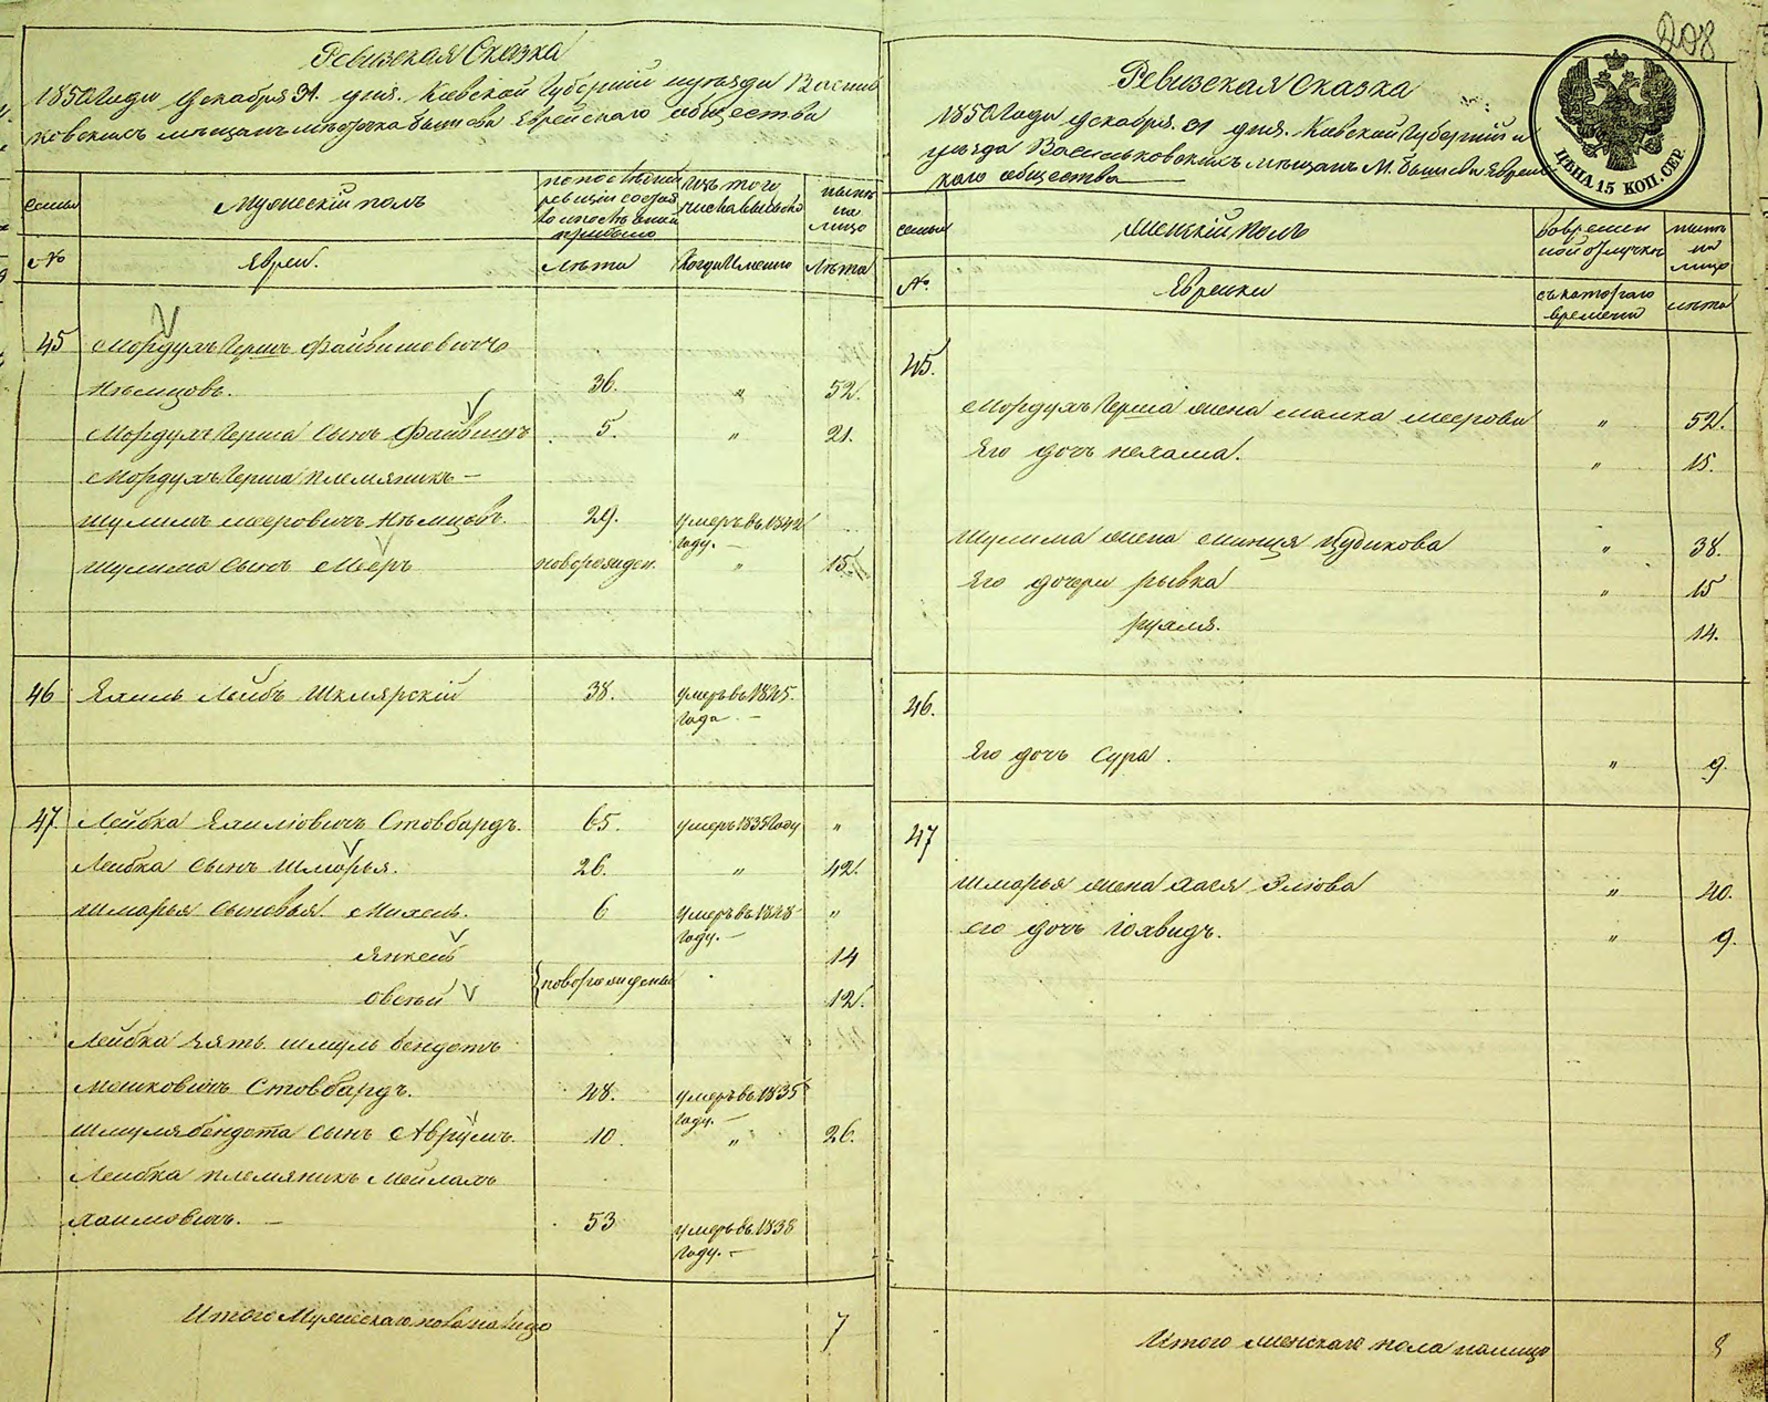 Ревизская Сказка
1850 Года Декабря 31. дня. Киевской Губернии и уезда Василь
ковскихъ мещанъ местечка Бышева Еврейскаго общества
семьи
Мужескій полъ
по последней
ревизіи состоя
ло и после оной
прибыло
Изъ того
числа выбыло
ныне
на
лицо
№
Евреи.
Лета
Когда Именно
Лета
45 Мордухъ Гершъ Файвишовичъ
Немцовъ. 36. " 52.
Мордухъ Герша Сынъ Файвишъ 5. " 21.
Мордухъ Герша племяникъ —
Шулимъ Мееровичъ Немцовъ. 29. умеръ въ 1842
году. —
Шулима Сынъ Меерь новорожден. " 15.
46 Хаимъ Лейбъ Шклярскій 38. умеръ въ 1845.
года —
47. Лейбка Хаимовичъ Стовбардъ. 65. умеръ 1835 Году "
Лейбка Сынъ Шмарья. 26. " 42.
Шмарья Сыновья. Михель. 6 умеръ въ 1828 "
году. —
Янкель 14
новорожденны
Овсей 12.
Лейбка зять Шмуль Бендетъ
Мошковичъ Стовбардъ. 48. умеръ въ 1835
году. —
Шмуля бендета сынъ Аврумъ. 10. " 26.
Лейбка племяникъ Мейлахъ
Хаимовичъ. — 53 умеръ въ 1838
году. —
Итого Мужескаго пола на лицо 7
208
ЦЕНА 15 КОП. СЕР.
Ревизская Сказка
1850 Года Декабря. 31 дня. Киевской Губерніи и
уезда Васильковскихъ мещанъ М. Бышева Еврейс
каго общества
семьи
Женскій полъ
Во времен
ной отлучке
ныне
на
лицо
№.
Еврейки
съ котораго
времени
лета
45.
Мордухъ Герша жена Малка Меерова " 52.
Его дочь Нехама. " 15.
Шулима жена Минця Цудикова " 38.
Его дочери Рывка " 15
Рухля. 14.
46.
Его дочь Сура. " 9.
47
Шмарья жена Хася Элюва " 40.
его дочь Іохвидъ. " 9.
Итого женскаго пола налицо 8